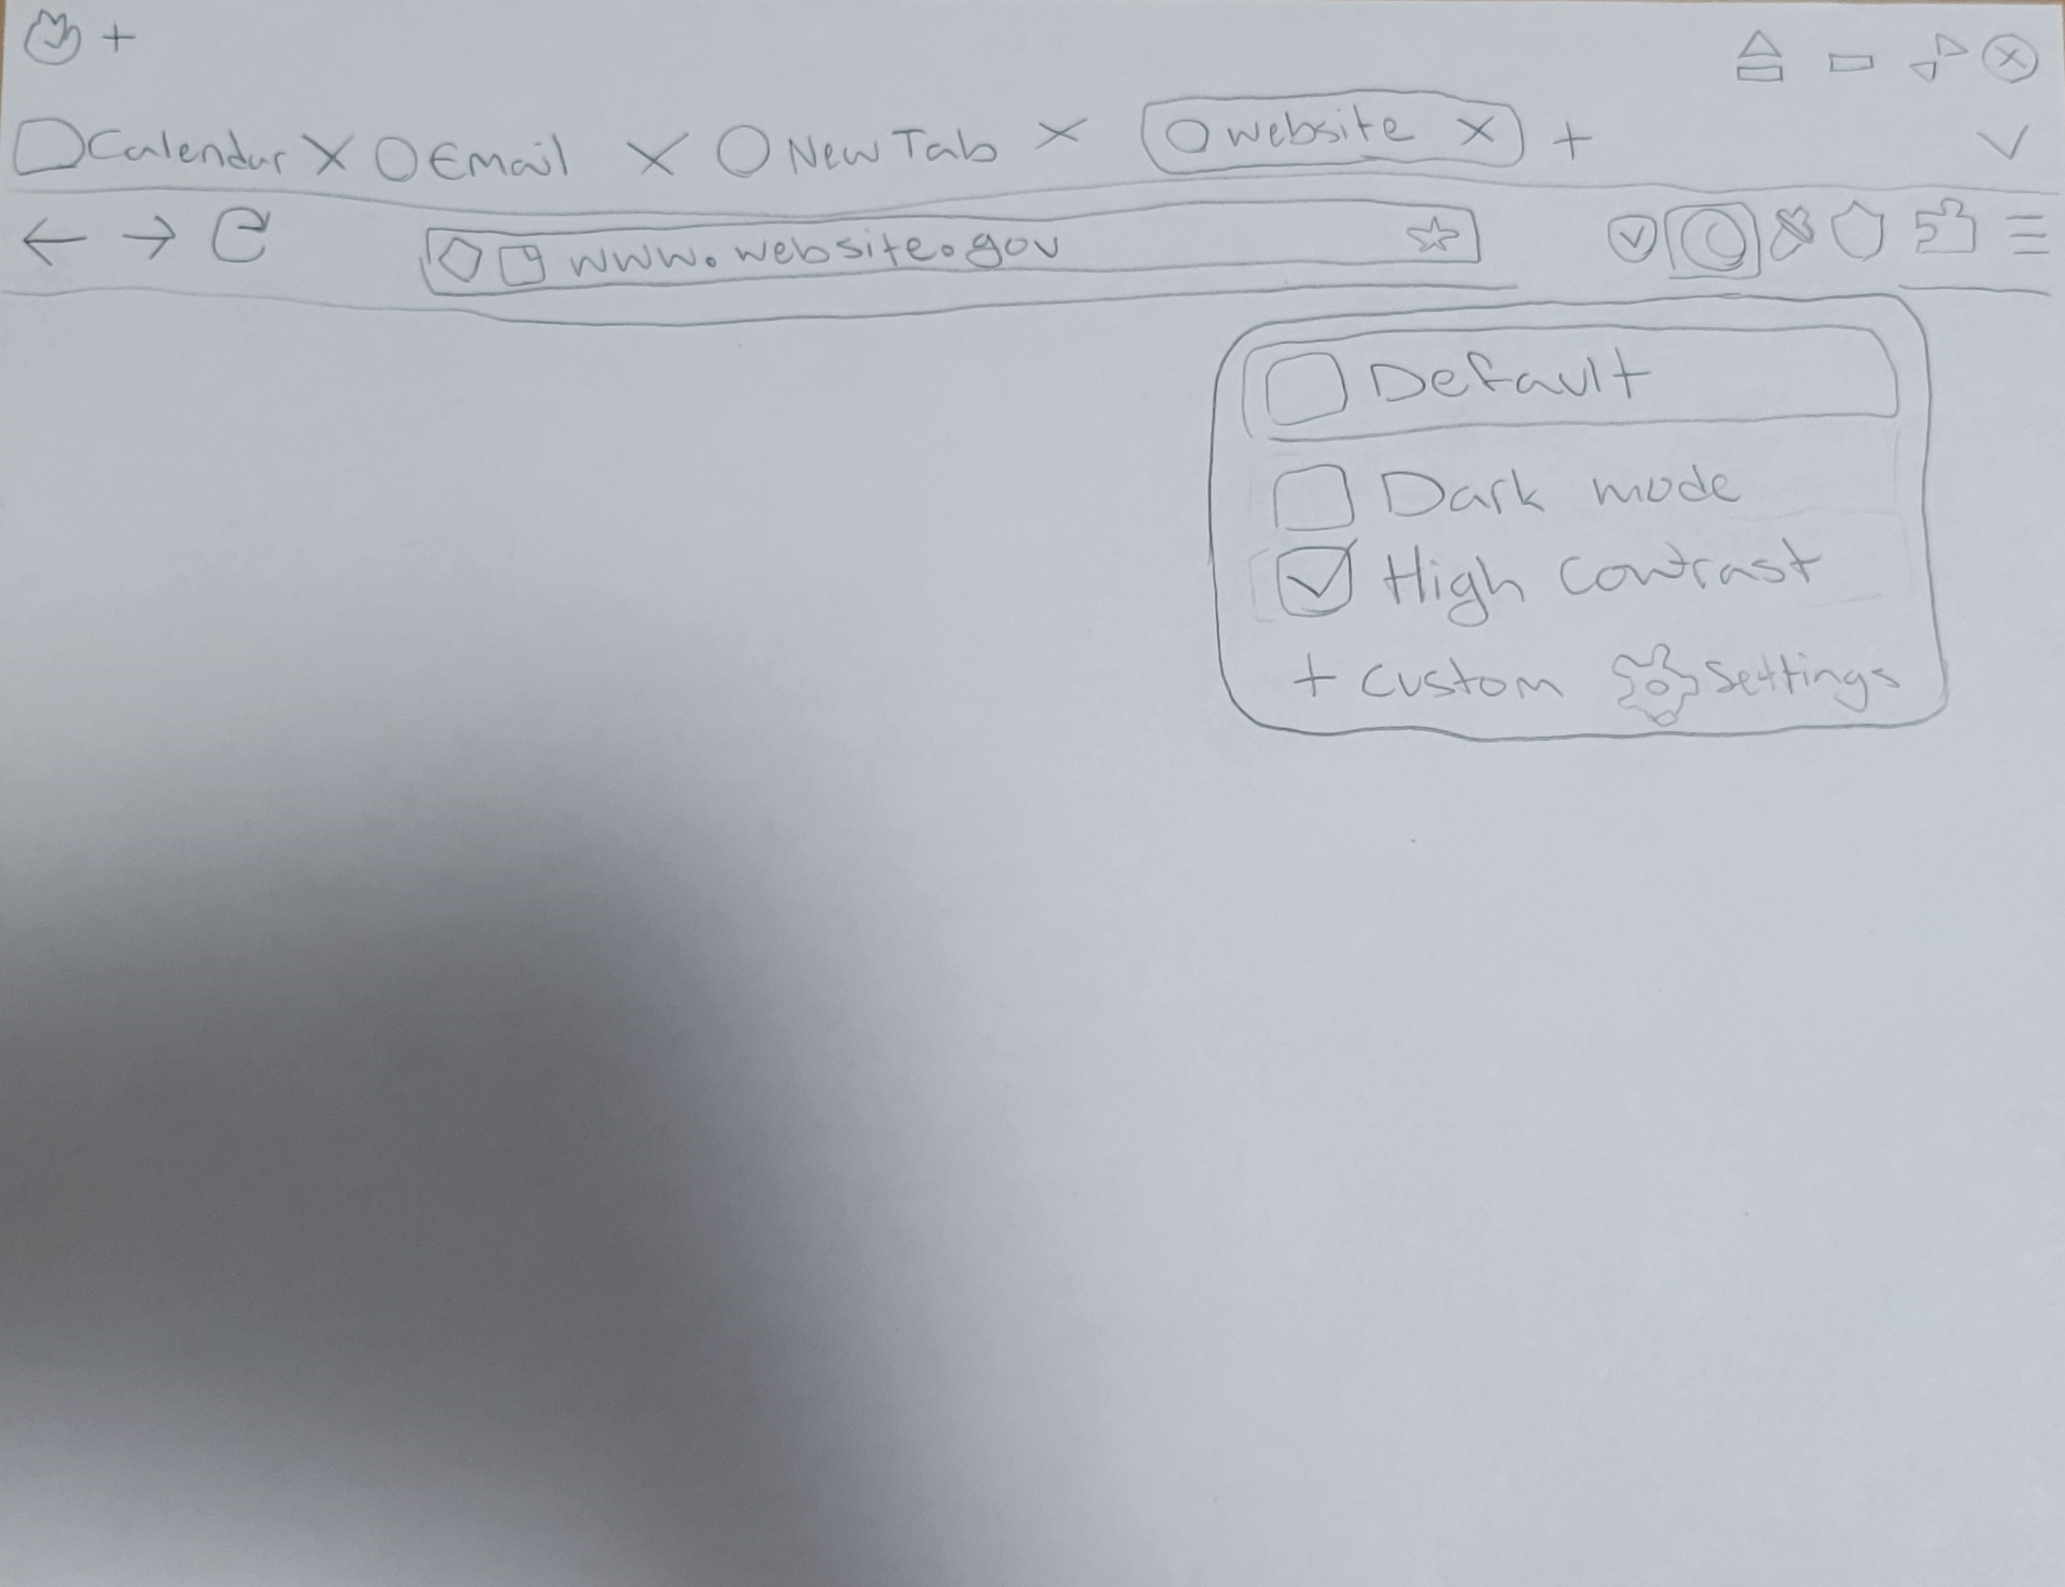 Calendar X Email X New Tab X website X +
www.website.gov
Default
Dark mode
High contrast
+ custom settings